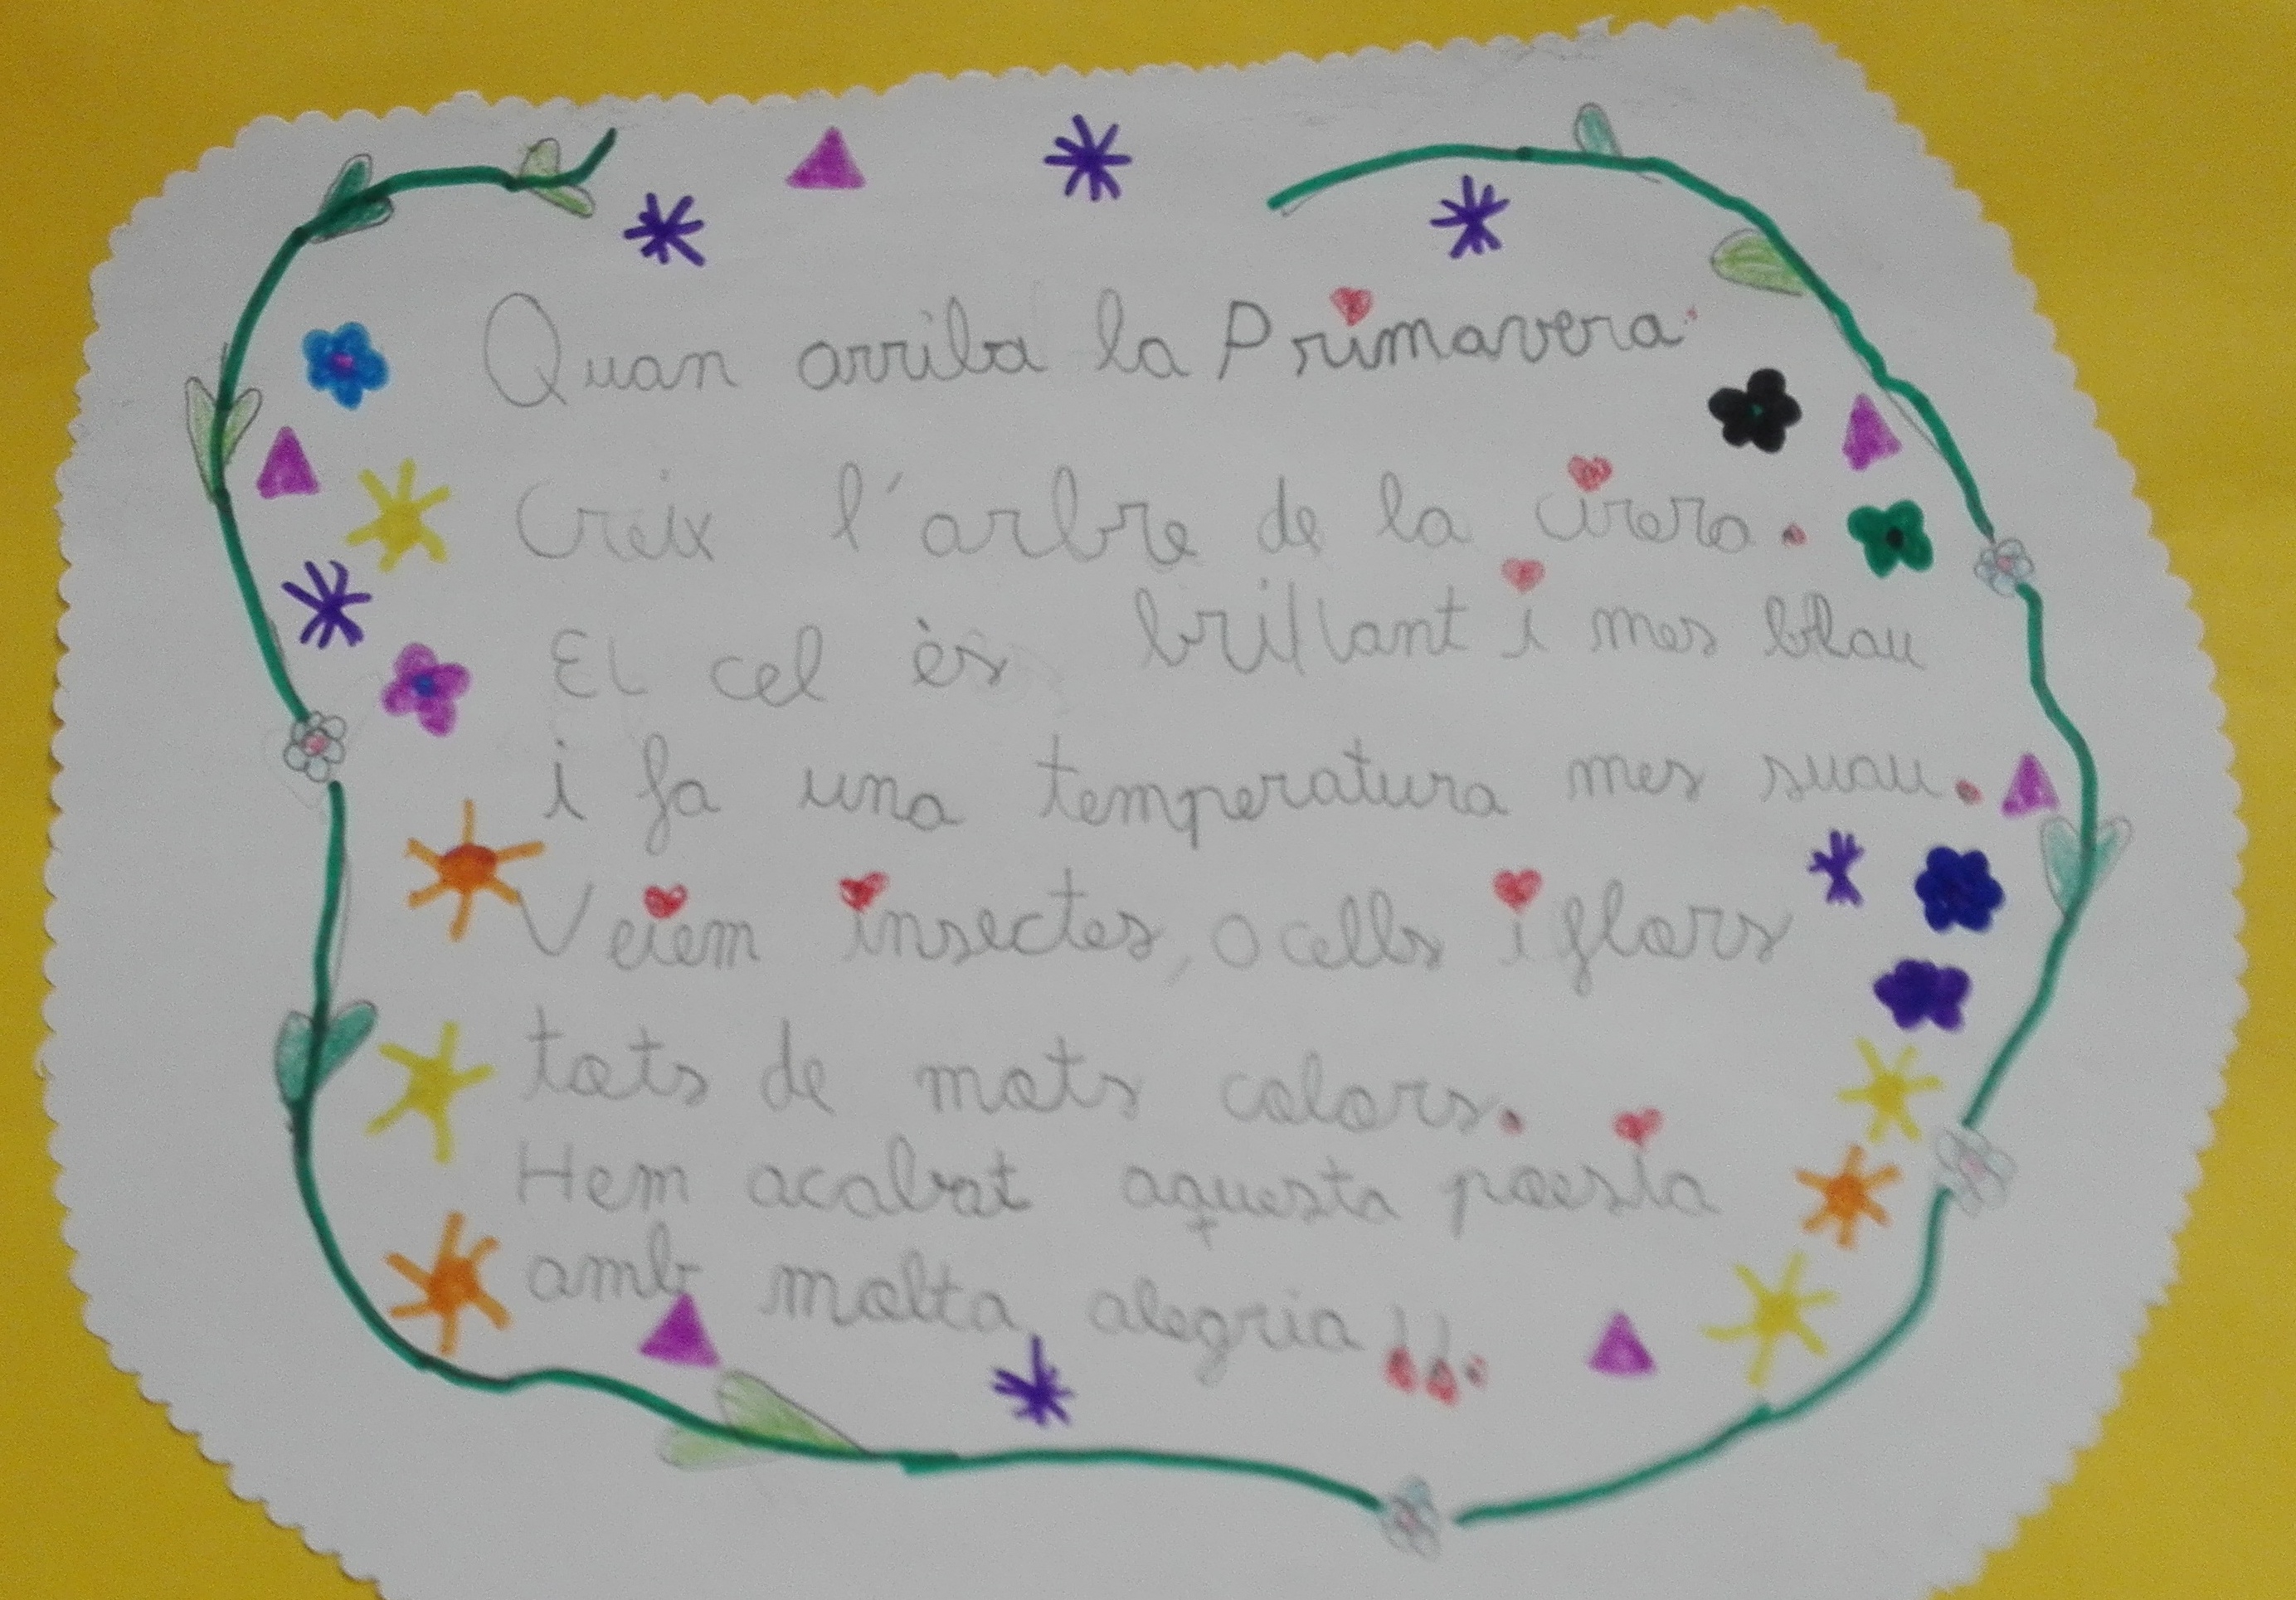 Quan arriba la Primavera.
Creix l'arbre de la cirera.
El cel ès brillant i mes blau
i fa una temperatura mes suau.
Veiem insectes, ocells i flors
tots de mots colors.
Hem acabat aquesta poesia
amb molta alegria!!.